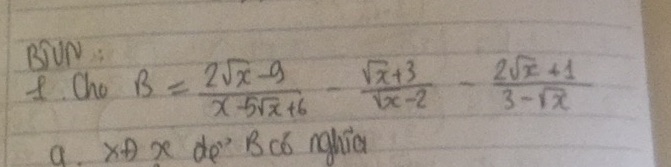 BTVN :
1. Cho B = \frac{2\sqrt{x}-9}{x-5\sqrt{x}+6} - \frac{\sqrt{x}+3}{\sqrt{x}-2} - \frac{2\sqrt{x}+1}{3-\sqrt{x}}
a. XĐ x để B có nghĩa